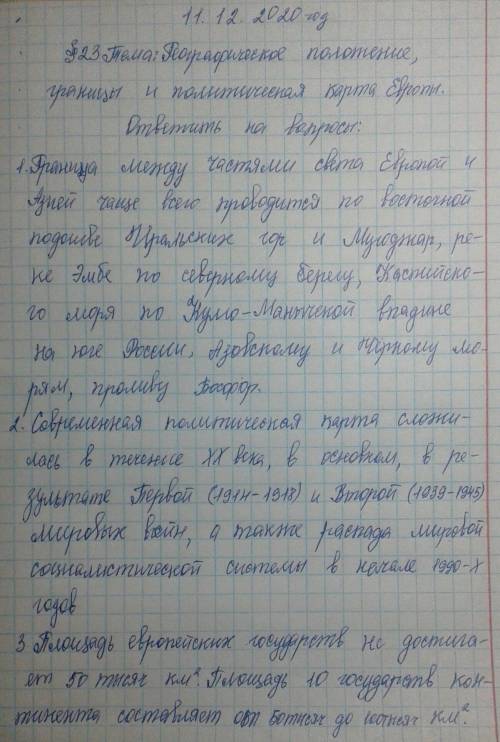 11. 12. 2020 год
§23 Тема: Географическое положение,
границы и политическая карта Европы.
Ответить на вопросы:
1. Граница между частями света Европой и
Азией чаще всего проводится по восточной
подошве Уральских гор и Мугоджар, ре-
ке Эмбе по северному берегу, Каспийско-
го моря по Кумо-Манычской впадине
на юге России, Азовскому и Чёрному мо-
рям, проливу Босфор.
2. Современная политическая карта сложи-
лась в течение XX века, в основном, в ре-
зультате Первой (1914-1918) и Второй (1939-1945)
мировых войн, а также распада мировой
социалистической системы в начале 1990-х
годов
3 Площадь европейских государств не достига-
ет 50 тысяч км². Площадь 10 государств кон-
тинента составляет от 50тысяч до 100тысяч км².